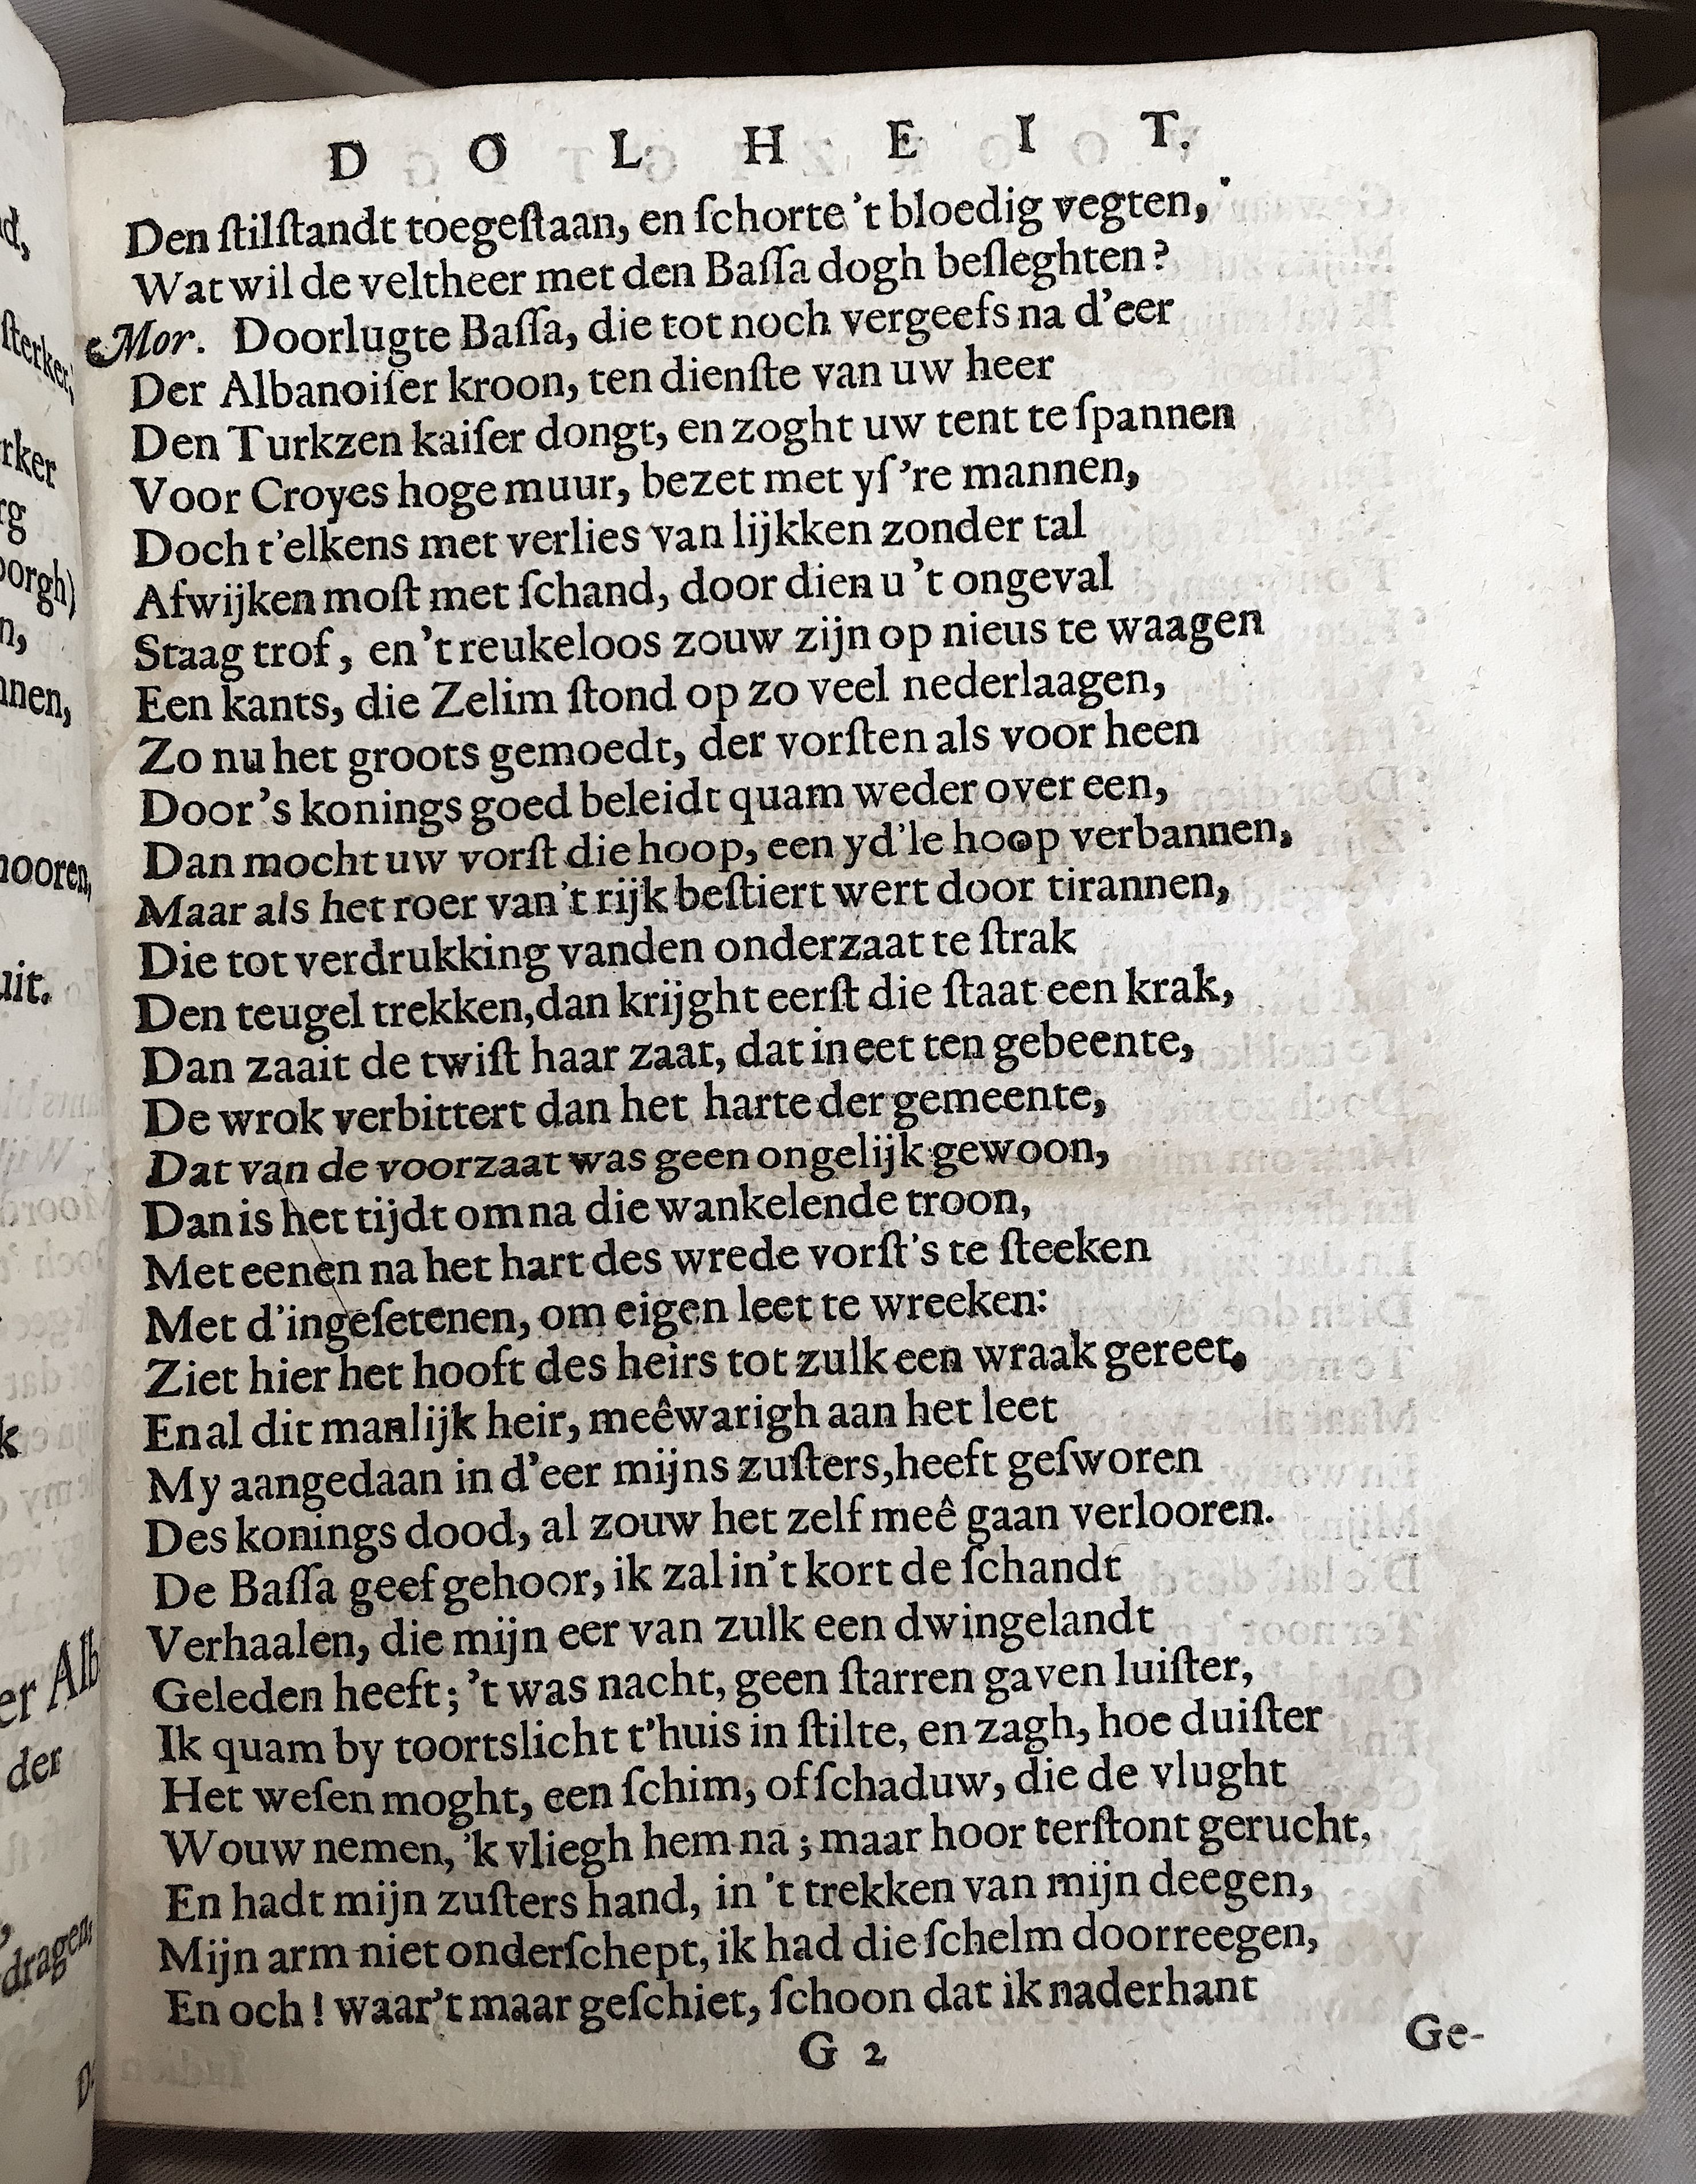 D O L H E I T.
Den ſtilſtandt toegeſtaan, en ſchorte 't bloedig vegten,
Wat wil de veltheer met den Baſſa dogh beſleghten?
Mor. Doorlugte Baſſa, die tot noch vergeefs na d'eer
Der Albanoiſer kroon, ten dienſte van uw heer
Den Turkzen kaiſer dongt, en zoght uw tent te ſpannen
Voor Croyes hoge muur, bezet met yſ 're mannen,
Doch t'elkens met verlies van lijkken zonder tal
Afwijken moſt met ſchand, door dien u 't ongeval
Staag trof, en 't reukeloos zouw zijn op nieus te waagen
Een kants, die Zelim ſtond op zo veel nederlaagen,
Zo nu het groots gemoedt, der vorſten als voor heen
Door 's konings goed beleidt quam weder over een,
Dan mocht uw vorſt die hoop, een yd'le hoop verbannen,
Maar als het roer van 't rijk beſtiert wert door tirannen,
Die tot verdrukking vanden onderzaat te ſtrak
Den teugel trekken, dan krijght eerſt die ſtaat een krak,
Dan zaait de twiſt haar zaat, dat in eet ten gebeente,
De wrok verbittert dan het harte der gemeente,
Dat van de voorzaat was geen ongelijk gewoon,
Dan is het tijdt om na die wankelende troon,
Met eenen na het hart des wrede vorſt's te ſteeken
Met d'ingeſetenen, om eigen leet te wreeken:
Ziet hier het hooft des heirs tot zulk een wraak gereet.
En al dit manlijk heir, meêwarigh aan het leet
My aangedaan in d'eer mijns zuſters, heeft geſworen
Des konings dood, al zouw het zelf meê gaan verlooren.
De Baſſa geef gehoor, ik zal in 't kort de ſchandt
Verhaalen, die mijn eer van zulk een dwingelandt
Geleden heeft; 't was nacht, geen ſtarren gaven luiſter,
Ik quam by toortslicht t'huis in ſtilte, en zagh, hoe duiſter
Het weſen moght, een ſchim, of ſchaduw, die de vlught
Wouw nemen, 'k vliegh hem na; maar hoor terſtont gerucht,
En hadt mijn zuſters hand, in 't trekken van mijn deegen,
Mijn arm niet onderſchept, ik had die ſchelm doorreegen,
En och! waar't maar geſchiet, ſchoon dat ik naderhant
G 2
Ge-